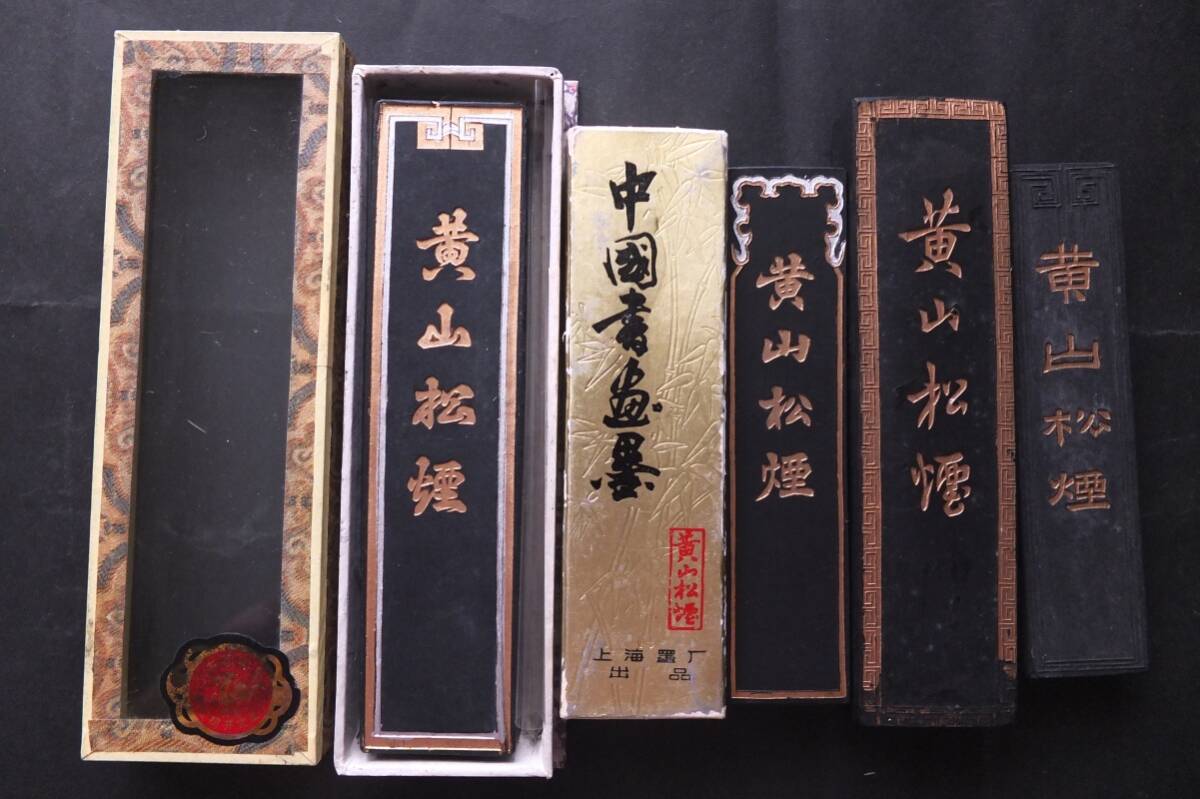 黄山松煙
中國書畫墨
黄山松煙
上海墨厂
出品
黄山松煙
黄山松煙
黄山松煙